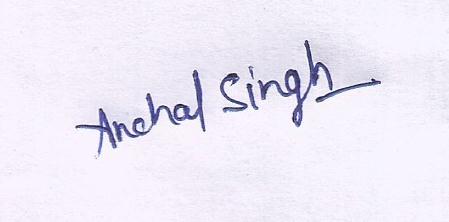 Anchal Singh